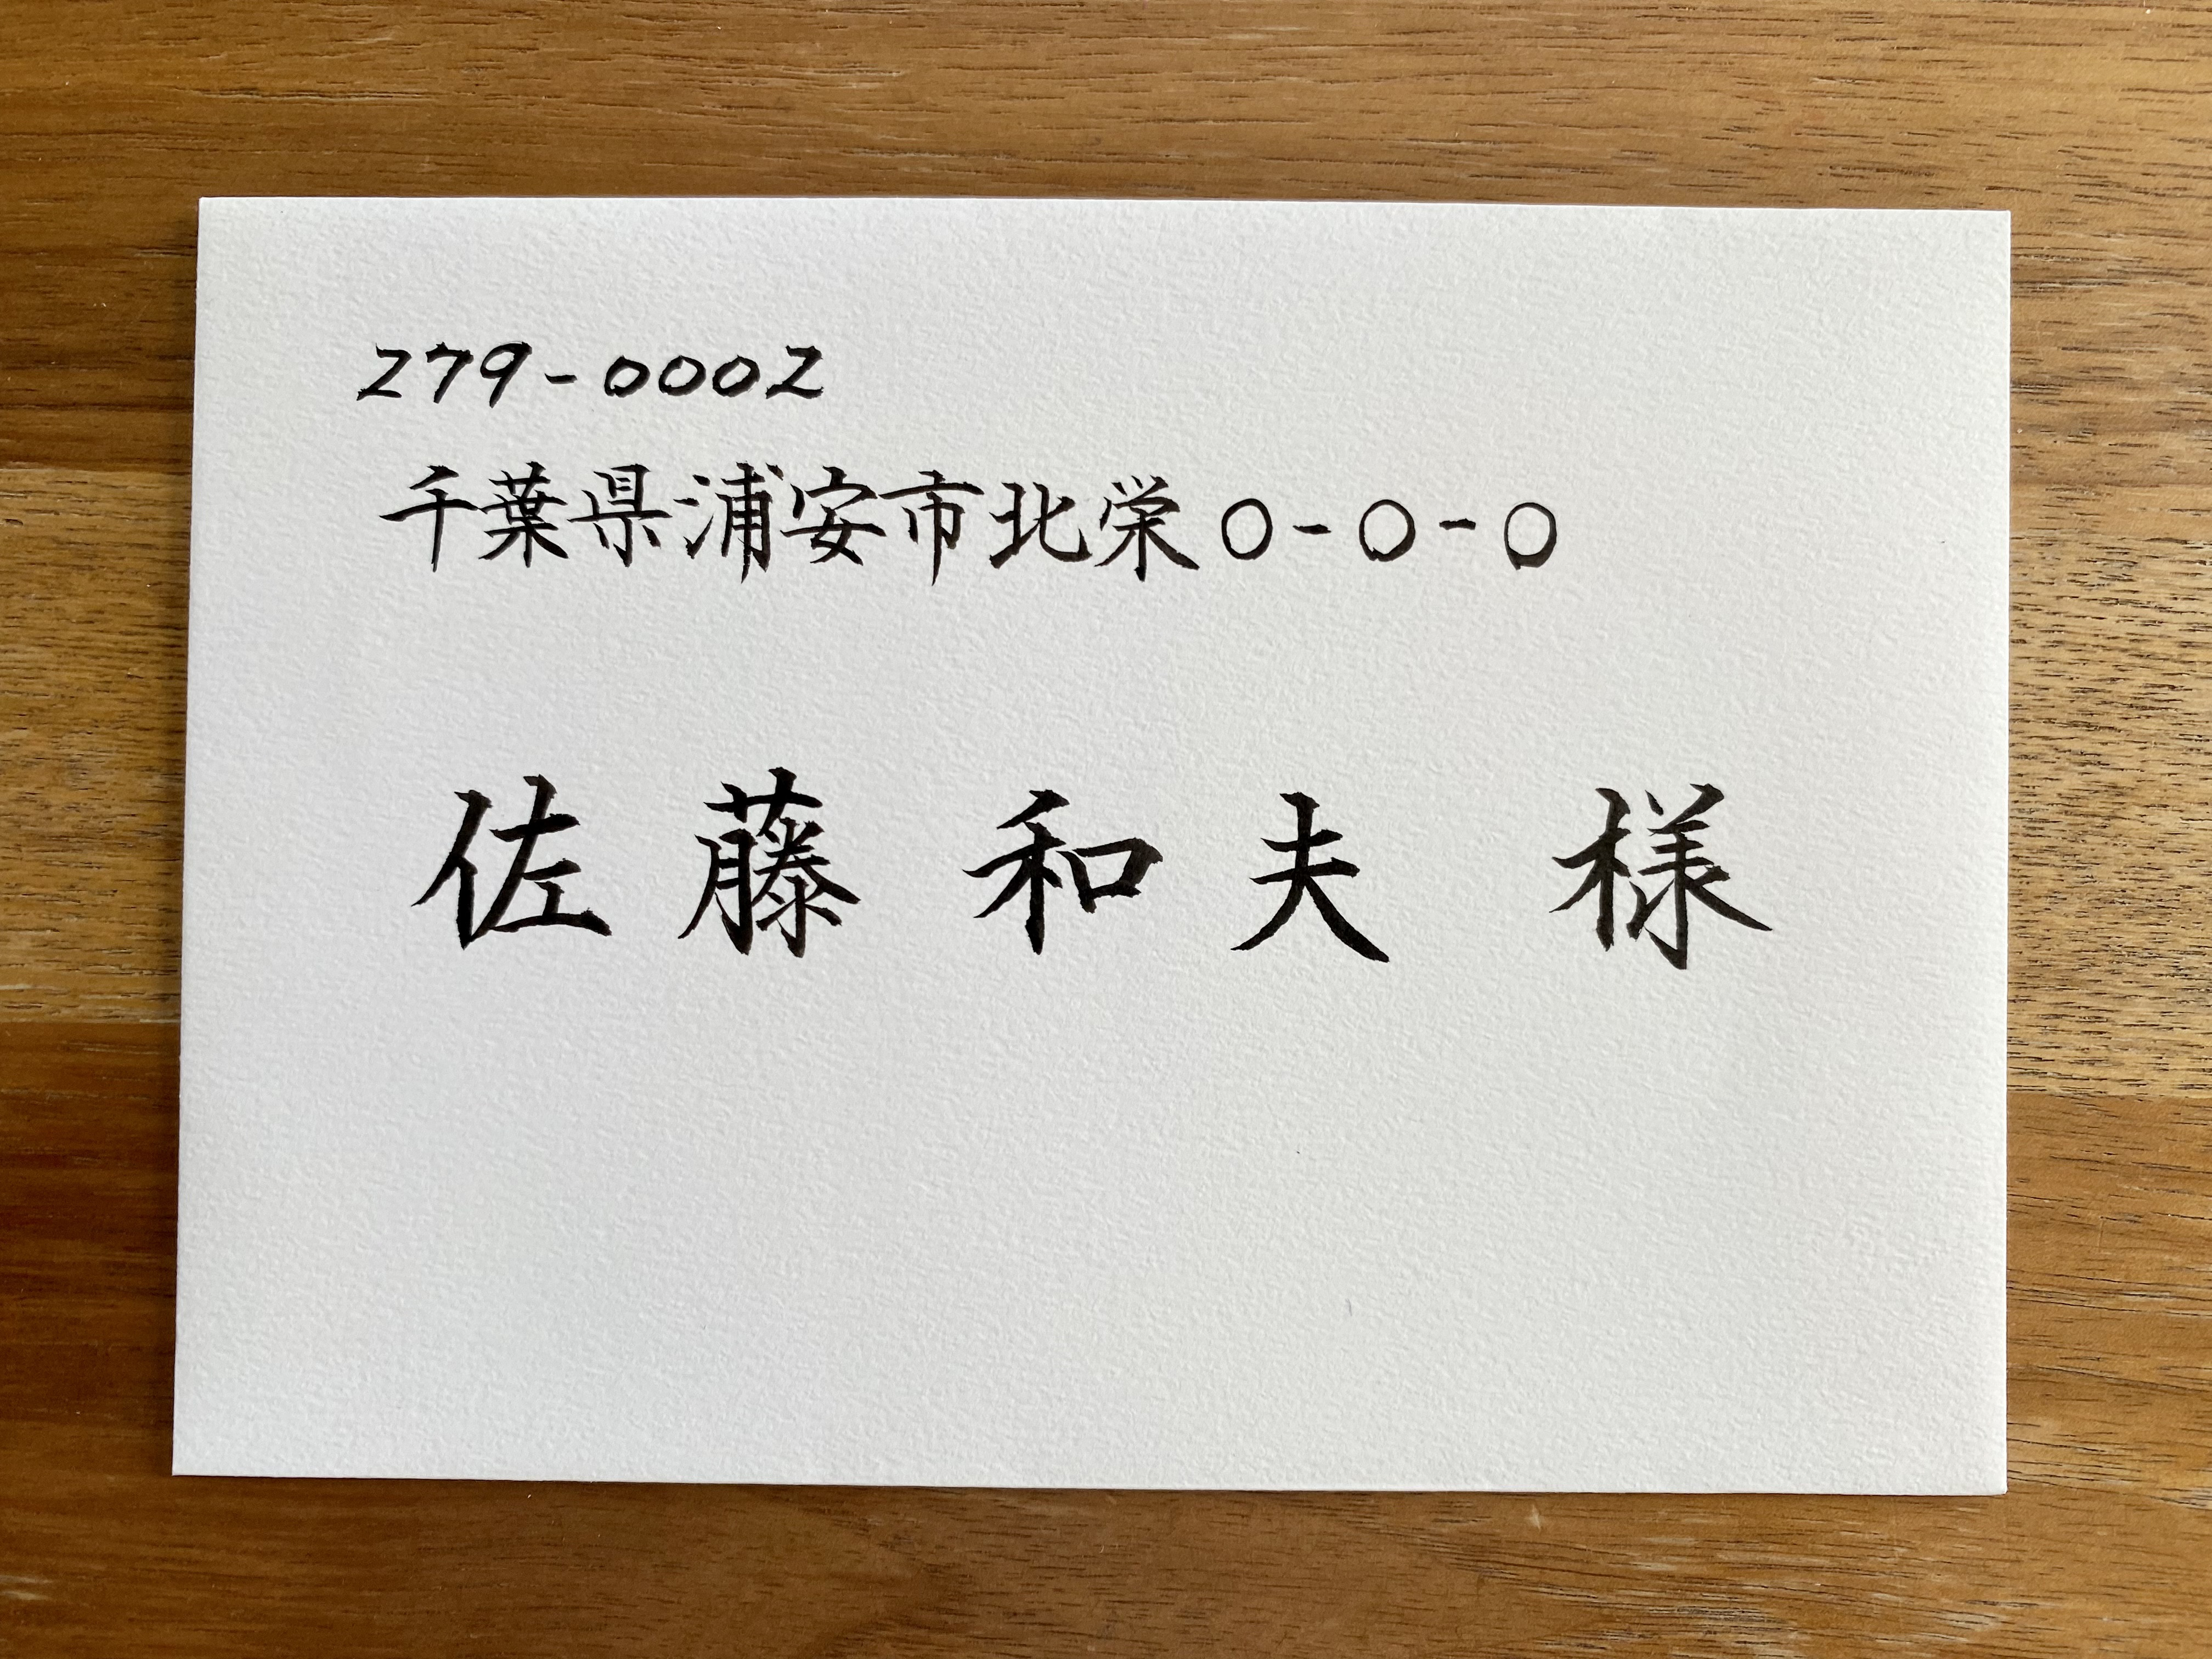 279-0002
千葉県浦安市北栄○-○-○
佐藤 和夫 様